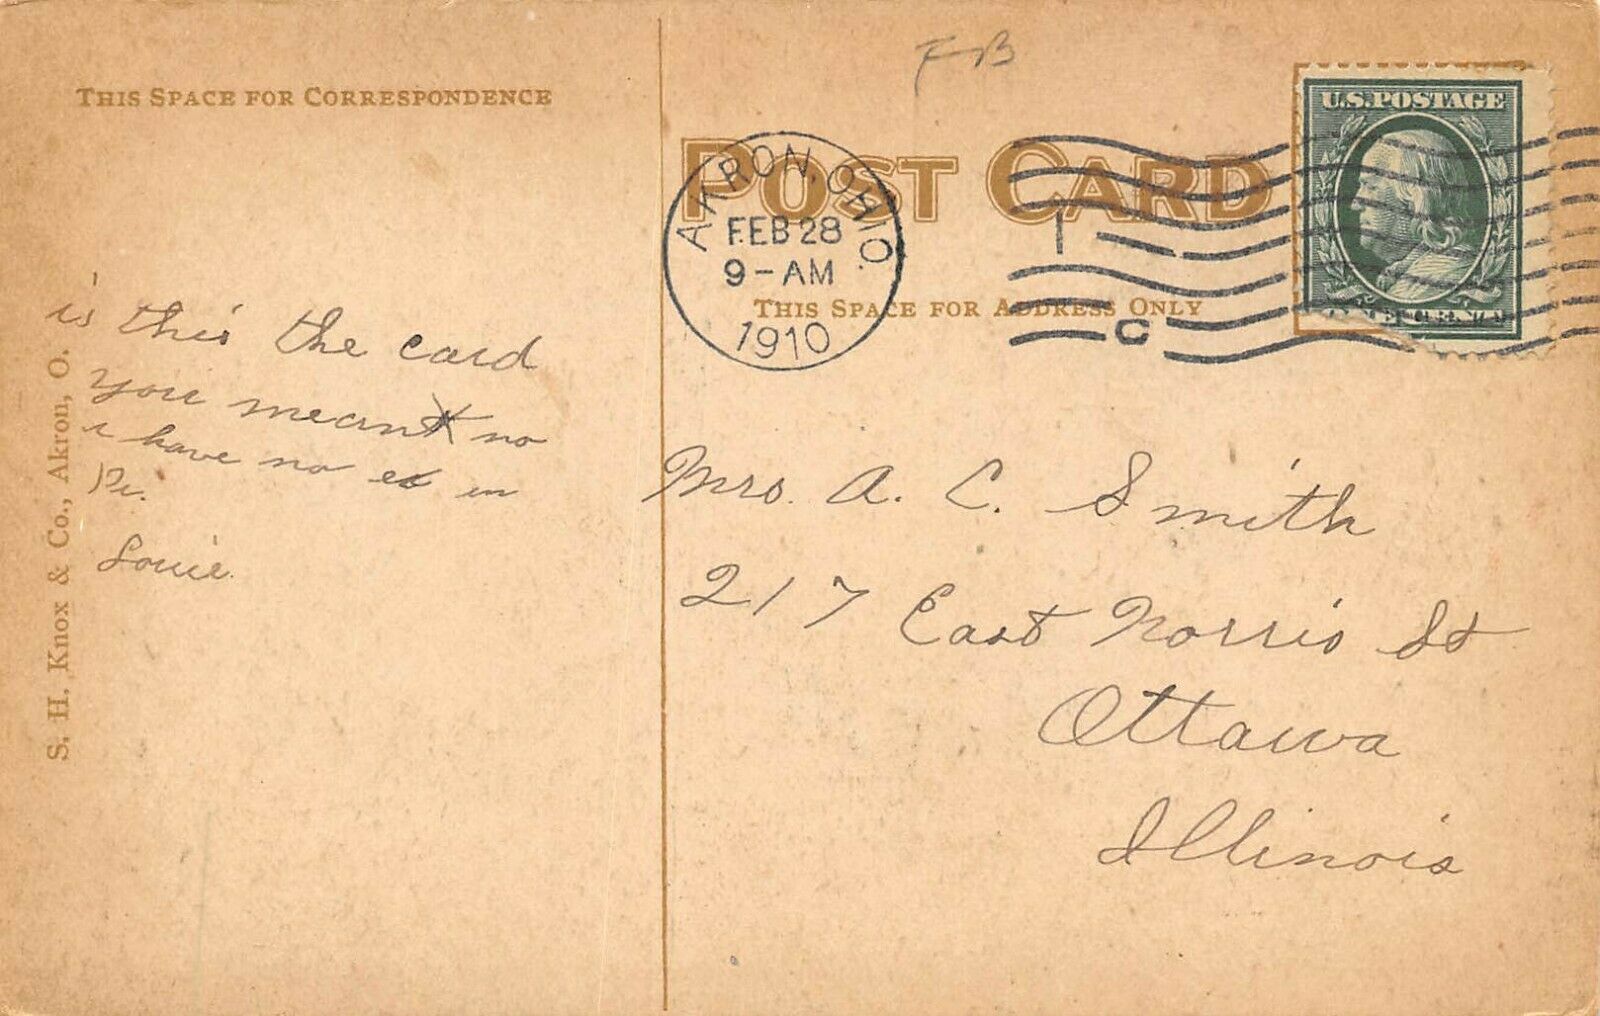 FB
THIS SPACE FOR CORRESPONDENCE
U.S. POSTAGE
POST CARD
AKRON, OHIO.
FEB 28
9-AM
1910
1
C
THIS SPACE FOR ADDRESS ONLY
S. H. Knox & Co., Akron, O.
is this the card
you meant no
i have no in
Louie.
Mrs. A. C. Smith
217 East Norris St
Ottawa
Illinois